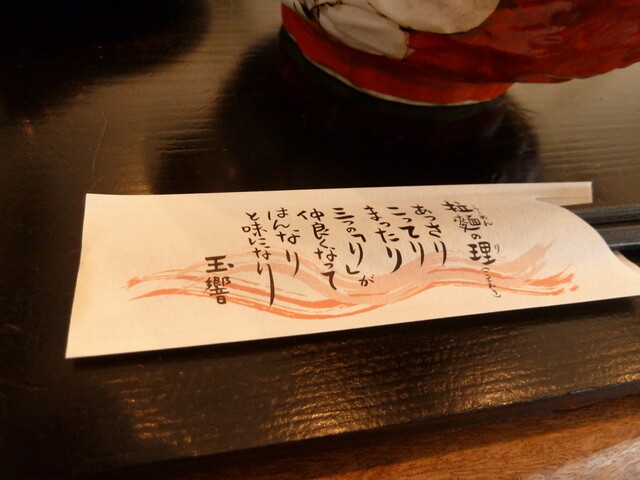 拉麺の理
あっさり
こってり
まったり
三つの「り」が
仲良くなって
はんなり
と味になり
玉響